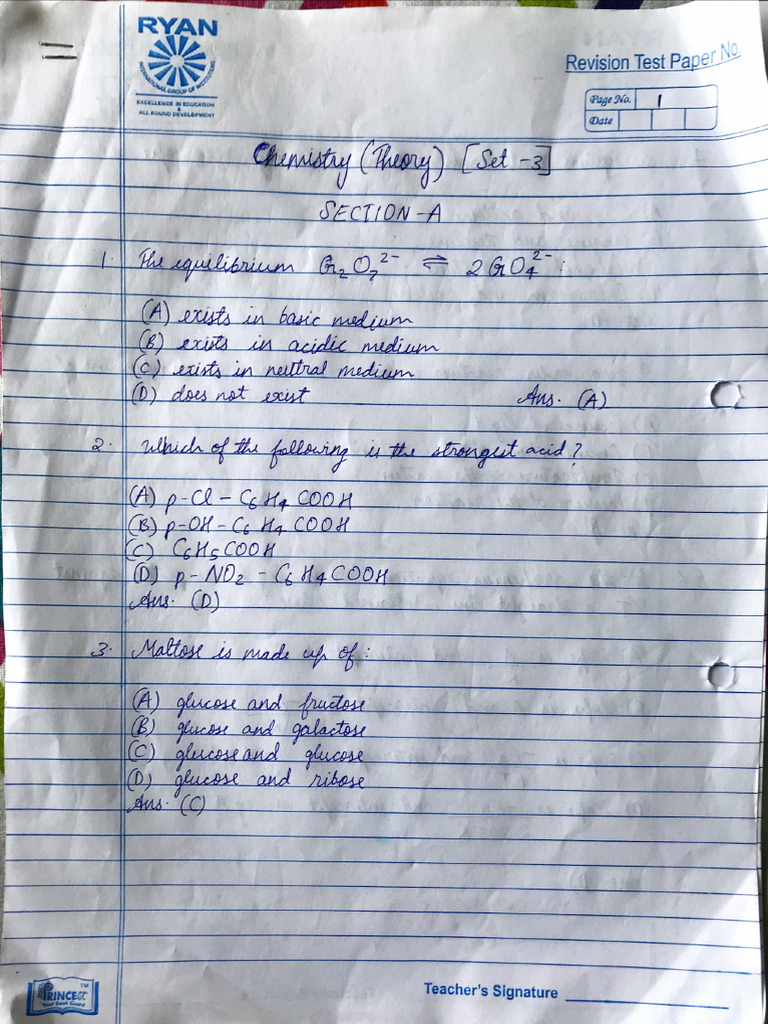 RYAN
INTERNATIONAL GROUP OF INSTITUTIONS
EXCELLENCE IN EDUCATION
&
ALL ROUND DEVELOPMENT
Revision Test Paper No.
Page No. 1
Date
Chemistry (Theory) [Set -3]
SECTION-A
1. The equilibrium Cr₂O₇²⁻ ⇌ 2CrO₄²⁻ :
(A) exists in basic medium
(B) exists in acidic medium
(C) exists in neutral medium
(D) does not exist Ans. (A)
2. Which of the following is the strongest acid?
(A) p-Cl - C₆H₄ COOH
(B) p-OH - C₆ H₄ COOH
(C) C₆H₅COOH
(D) p - NO₂ - C₆H₄COOH
Ans. (D)
3. Maltose is made up of :
(A) glucose and fructose
(B) glucose and galactose
(C) glucose and glucose
(D) glucose and ribose
Ans. (C)
PRINCE
TM
Your Book Guard
Teacher's Signature